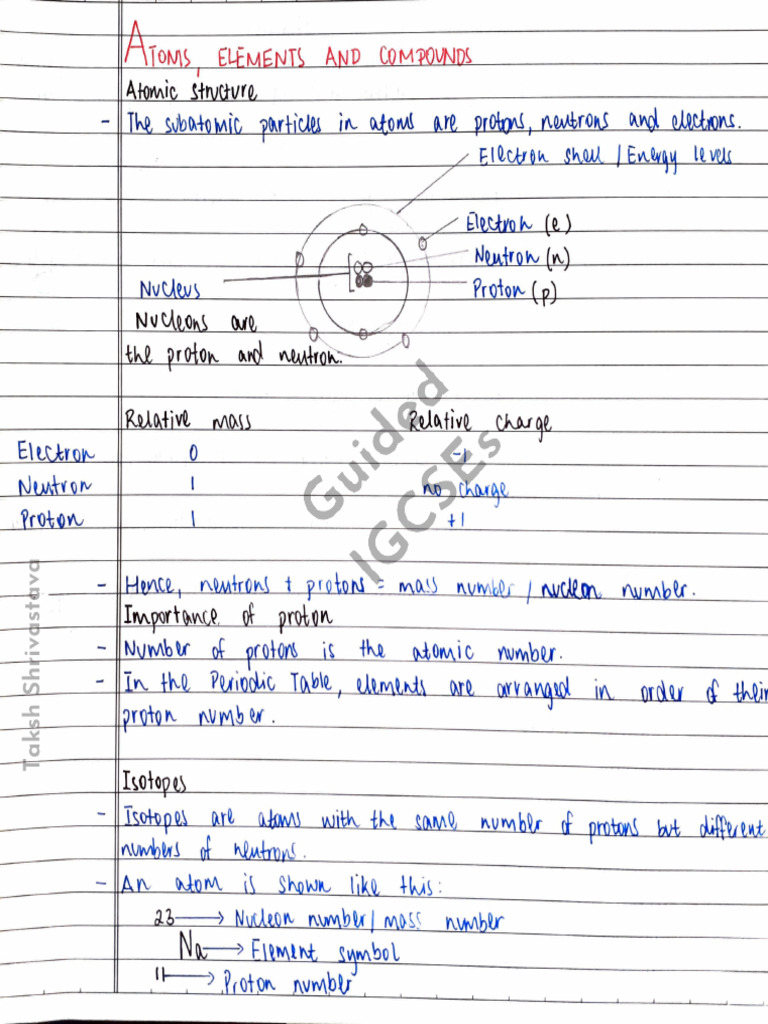 ATOMS, ELEMENTS AND COMPOUNDS
Atomic structure
- The subatomic particles in atoms are protons, neutrons and electrons.
Electron shell / Energy levels
Electron (e)
Neutron (n)
Nucleus
Proton (p)
Nucleons are
the proton and neutron.
Relative mass Relative charge
Electron 0 -1
Neutron 1 no charge
Proton 1 +1
- Hence, neutrons + protons = mass number / nucleon number.
Importance of proton
- Number of protons is the atomic number.
- In the Periodic Table, elements are arranged in order of their
proton number.
Isotopes
- Isotopes are atoms with the same number of protons but different
numbers of neutrons.
- An atom is shown like this:
23 → Nucleon number/ mass number
Na → Element symbol
11 → Proton number
Guided
IGCSEs
Taksh Shrivastava